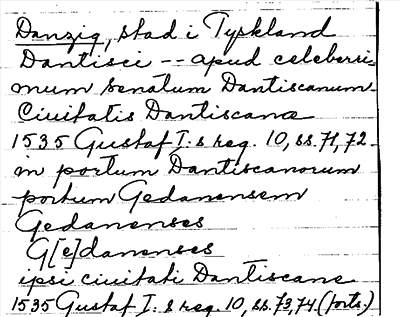 Danzig, stad i Tyskland
Dantisci -- apud celeberri-
mum senatum Dantiscanum
Ciuitatis Dantiscanæ
1535 Gustaf I:s reg. 10, ss. 71, 72.
in portum Dantiscanorum
portum Gedanensem
Gedanenses
G[e]danenses
ipsi ciuitati Dantiscane
1535 Gustaf I:s reg. 10, ss. 73, 74. (forts.)